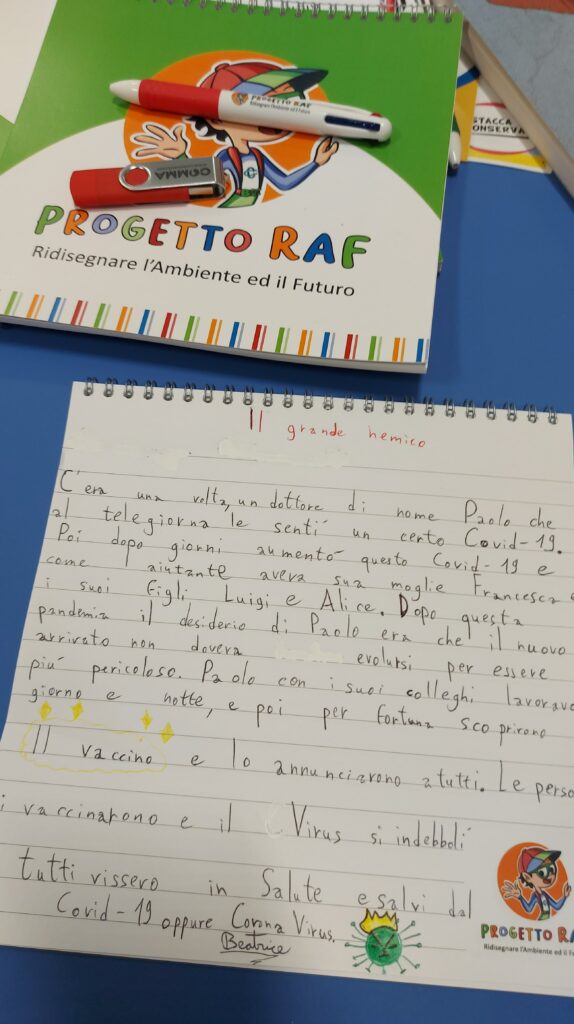 PROGETTO RAF
Ridisegnare l'Ambiente ed il Futuro
COMMA
STACCA
CONSERVA
PROGETTO RAF
Ridisegnare l'Ambiente ed il Futuro
Il grande nemico
C'era una volta, un dottore di nome Paolo che
al telegiorna le sentí un certo Covid-19.
Poi dopo giorni aumentó questo Covid-19 e
come aiutante aveva sua moglie Francesca e
i suoi figli Luigi e Alice. Dopo questa
pandemia il desiderio di Paolo era che il nuovo
arrivato non doveva evolversi per essere
piú pericoloso. Paolo con i suoi colleghi lavorava
giorno e notte, e poi per fortuna scoprirono
Il vaccino e lo annunciarono a tutti. Le perso
i vaccinarono e il Virus si indebbolí
tutti vissero in Salute e salvi dal
Covid-19 oppure Corona Virus.
Beatrice
PROGETTO RA
Ridisegnare l'Ambiente ed il Futuro